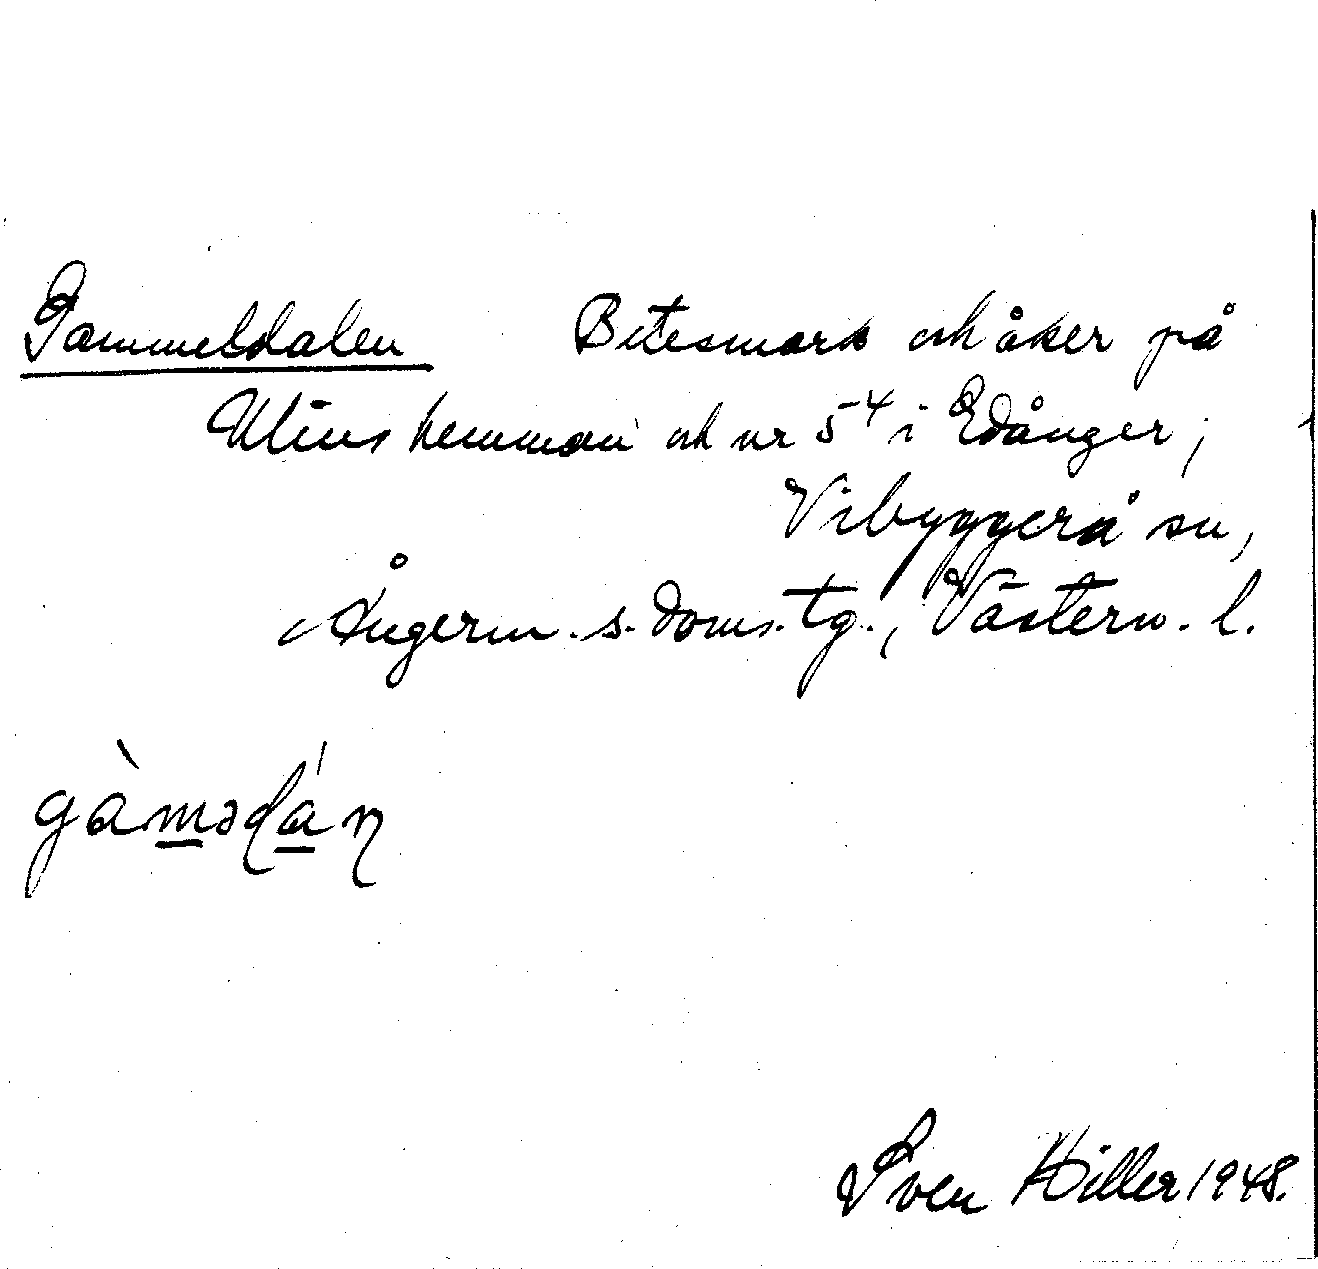 Gammeldalen Betesmark och åker på
Ulins hemman och nr 5⁴ i Edånger,
Vibyggerå sn,
Ångerm. s. doms. tg., Västern. l.
gàmədán
Sven Hiller 1948.